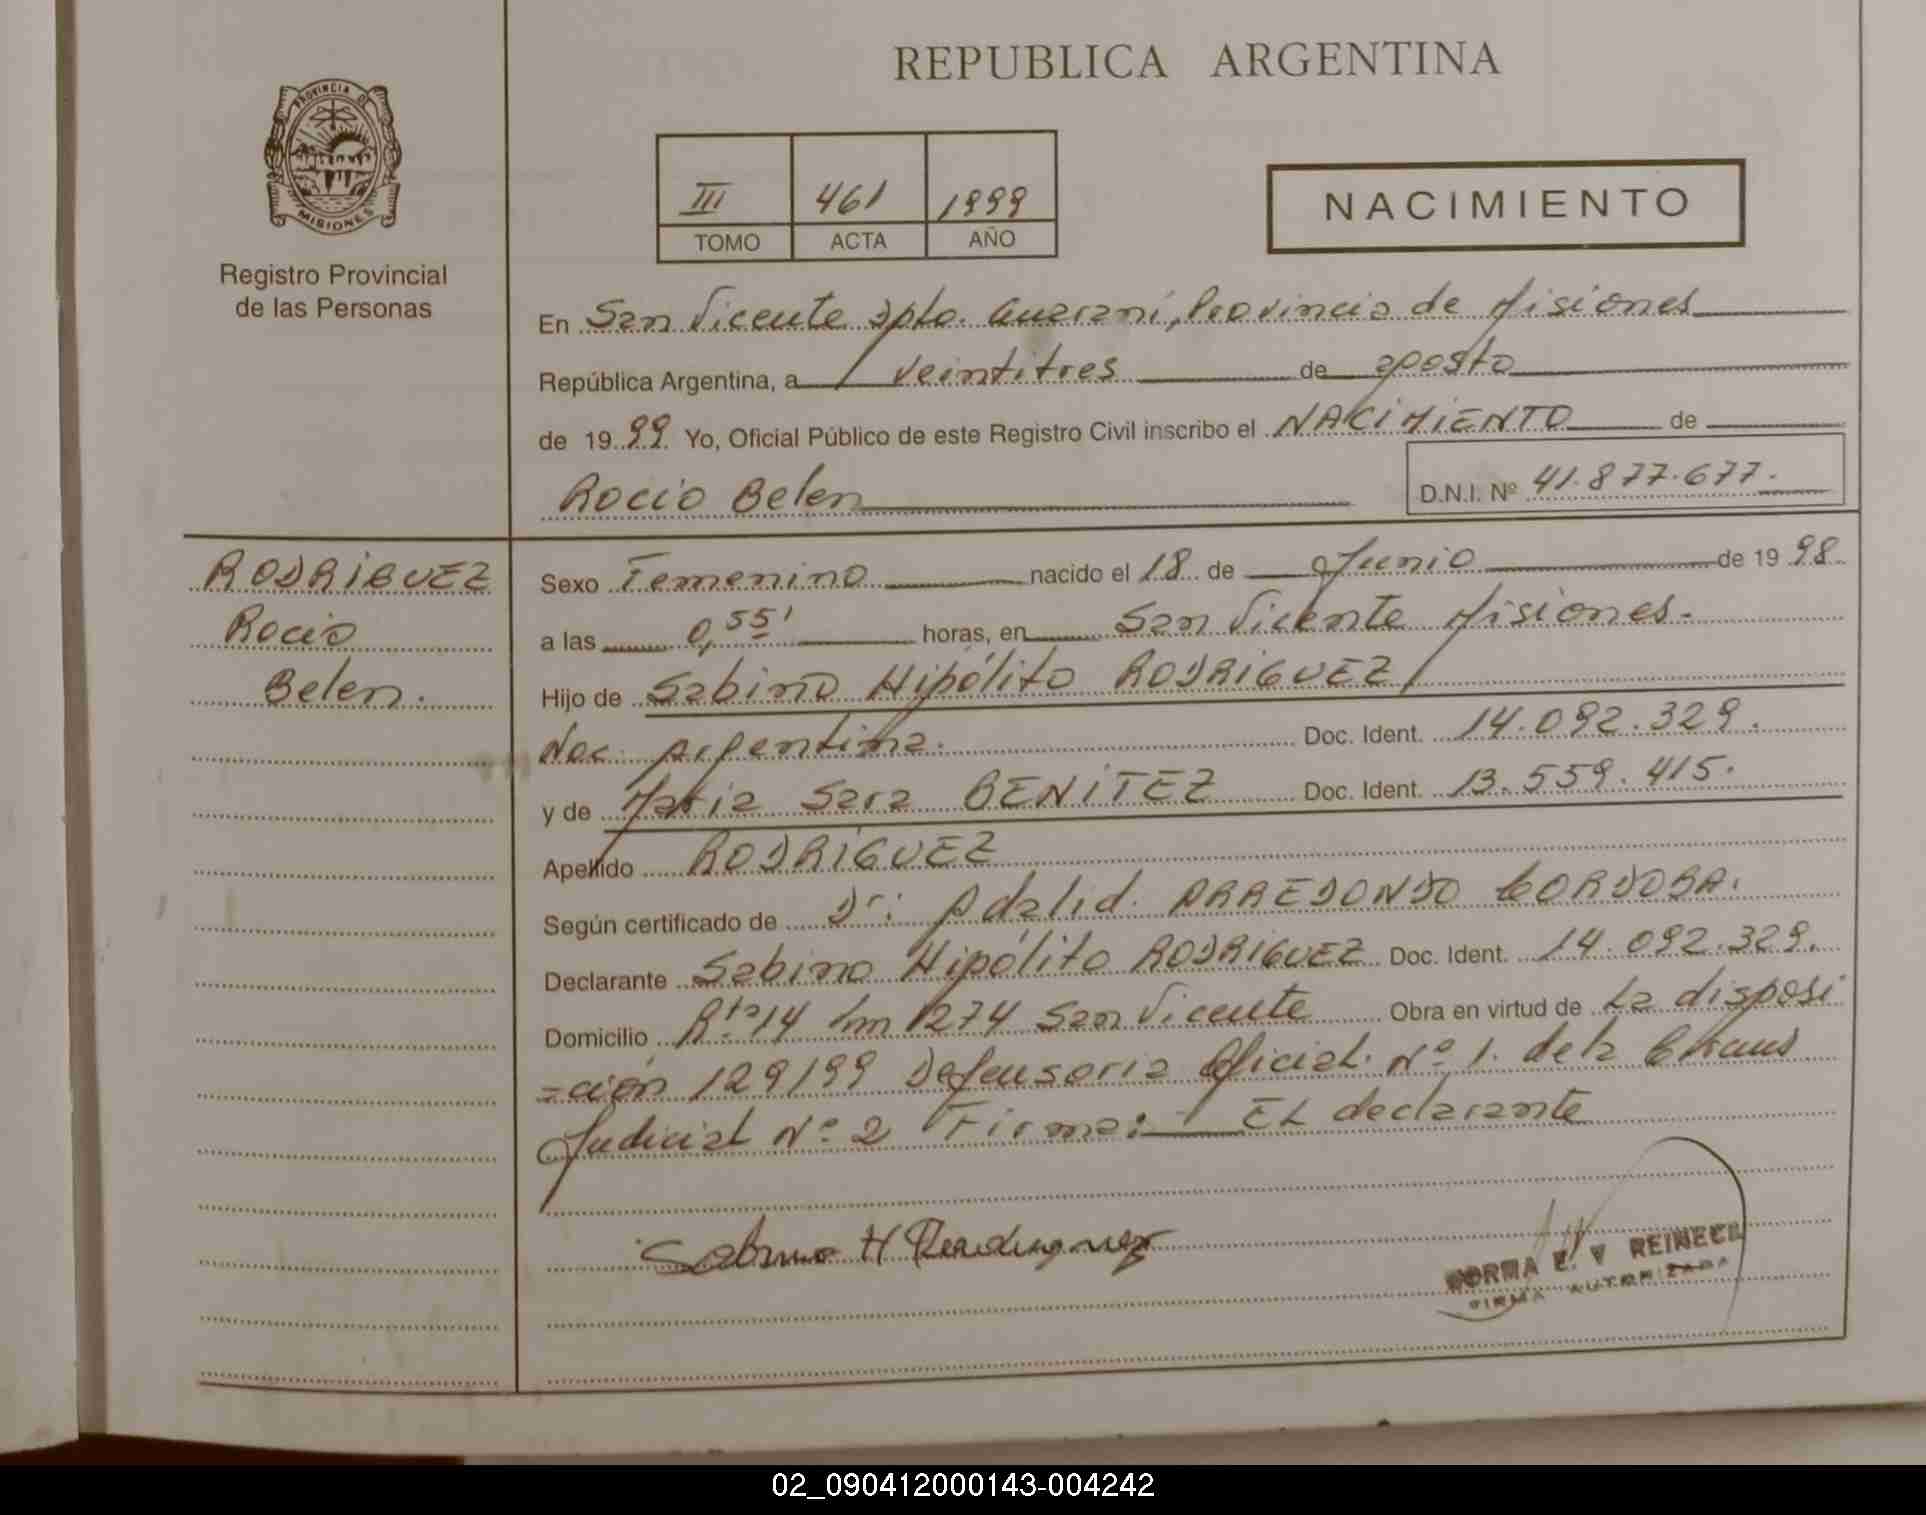 REPUBLICA ARGENTINA
PROVINCIA DE
MISIONES
Registro Provincial
de las Personas
III 461 1999
TOMO ACTA AÑO
NACIMIENTO
En San Vicente Dpto. Guarani, Provincia de Misiones
República Argentina, a veintitres de agosto
de 1999 Yo, Oficial Público de este Registro Civil inscribo el NACIMIENTO de
Rocio Belen D.N.I. Nº 41.877.677.
RODRIGUEZ
Rocio
Belen.
Sexo Femenino nacido el 18 de Junio de 1998
a las 0,55' horas, en San Vicente Misiones.
Hijo de Sabino Hipólito RODRIGUEZ
Nac. Argentina. Doc. Ident. 14.092.329.
y de Maria Sara BENITEZ Doc. Ident. 13.559.415.
Apellido RODRIGUEZ
Según certificado de Dr: Adalid. ARREDONDO CORDOBA.
Declarante Sabino Hipólito RODRIGUEZ Doc. Ident. 14.092.329.
Domicilio Rta 14 km 1274 San Vicente Obra en virtud de La disposi
=ción 129/99 Defensoria Oficial Nº 1. de la
Judicial Nº 2 Firma: EL declarante
Sabino H Rodriguez
NORMA E. V REINECK
FIRMA AUTORIZADA
02_090412000143-004242